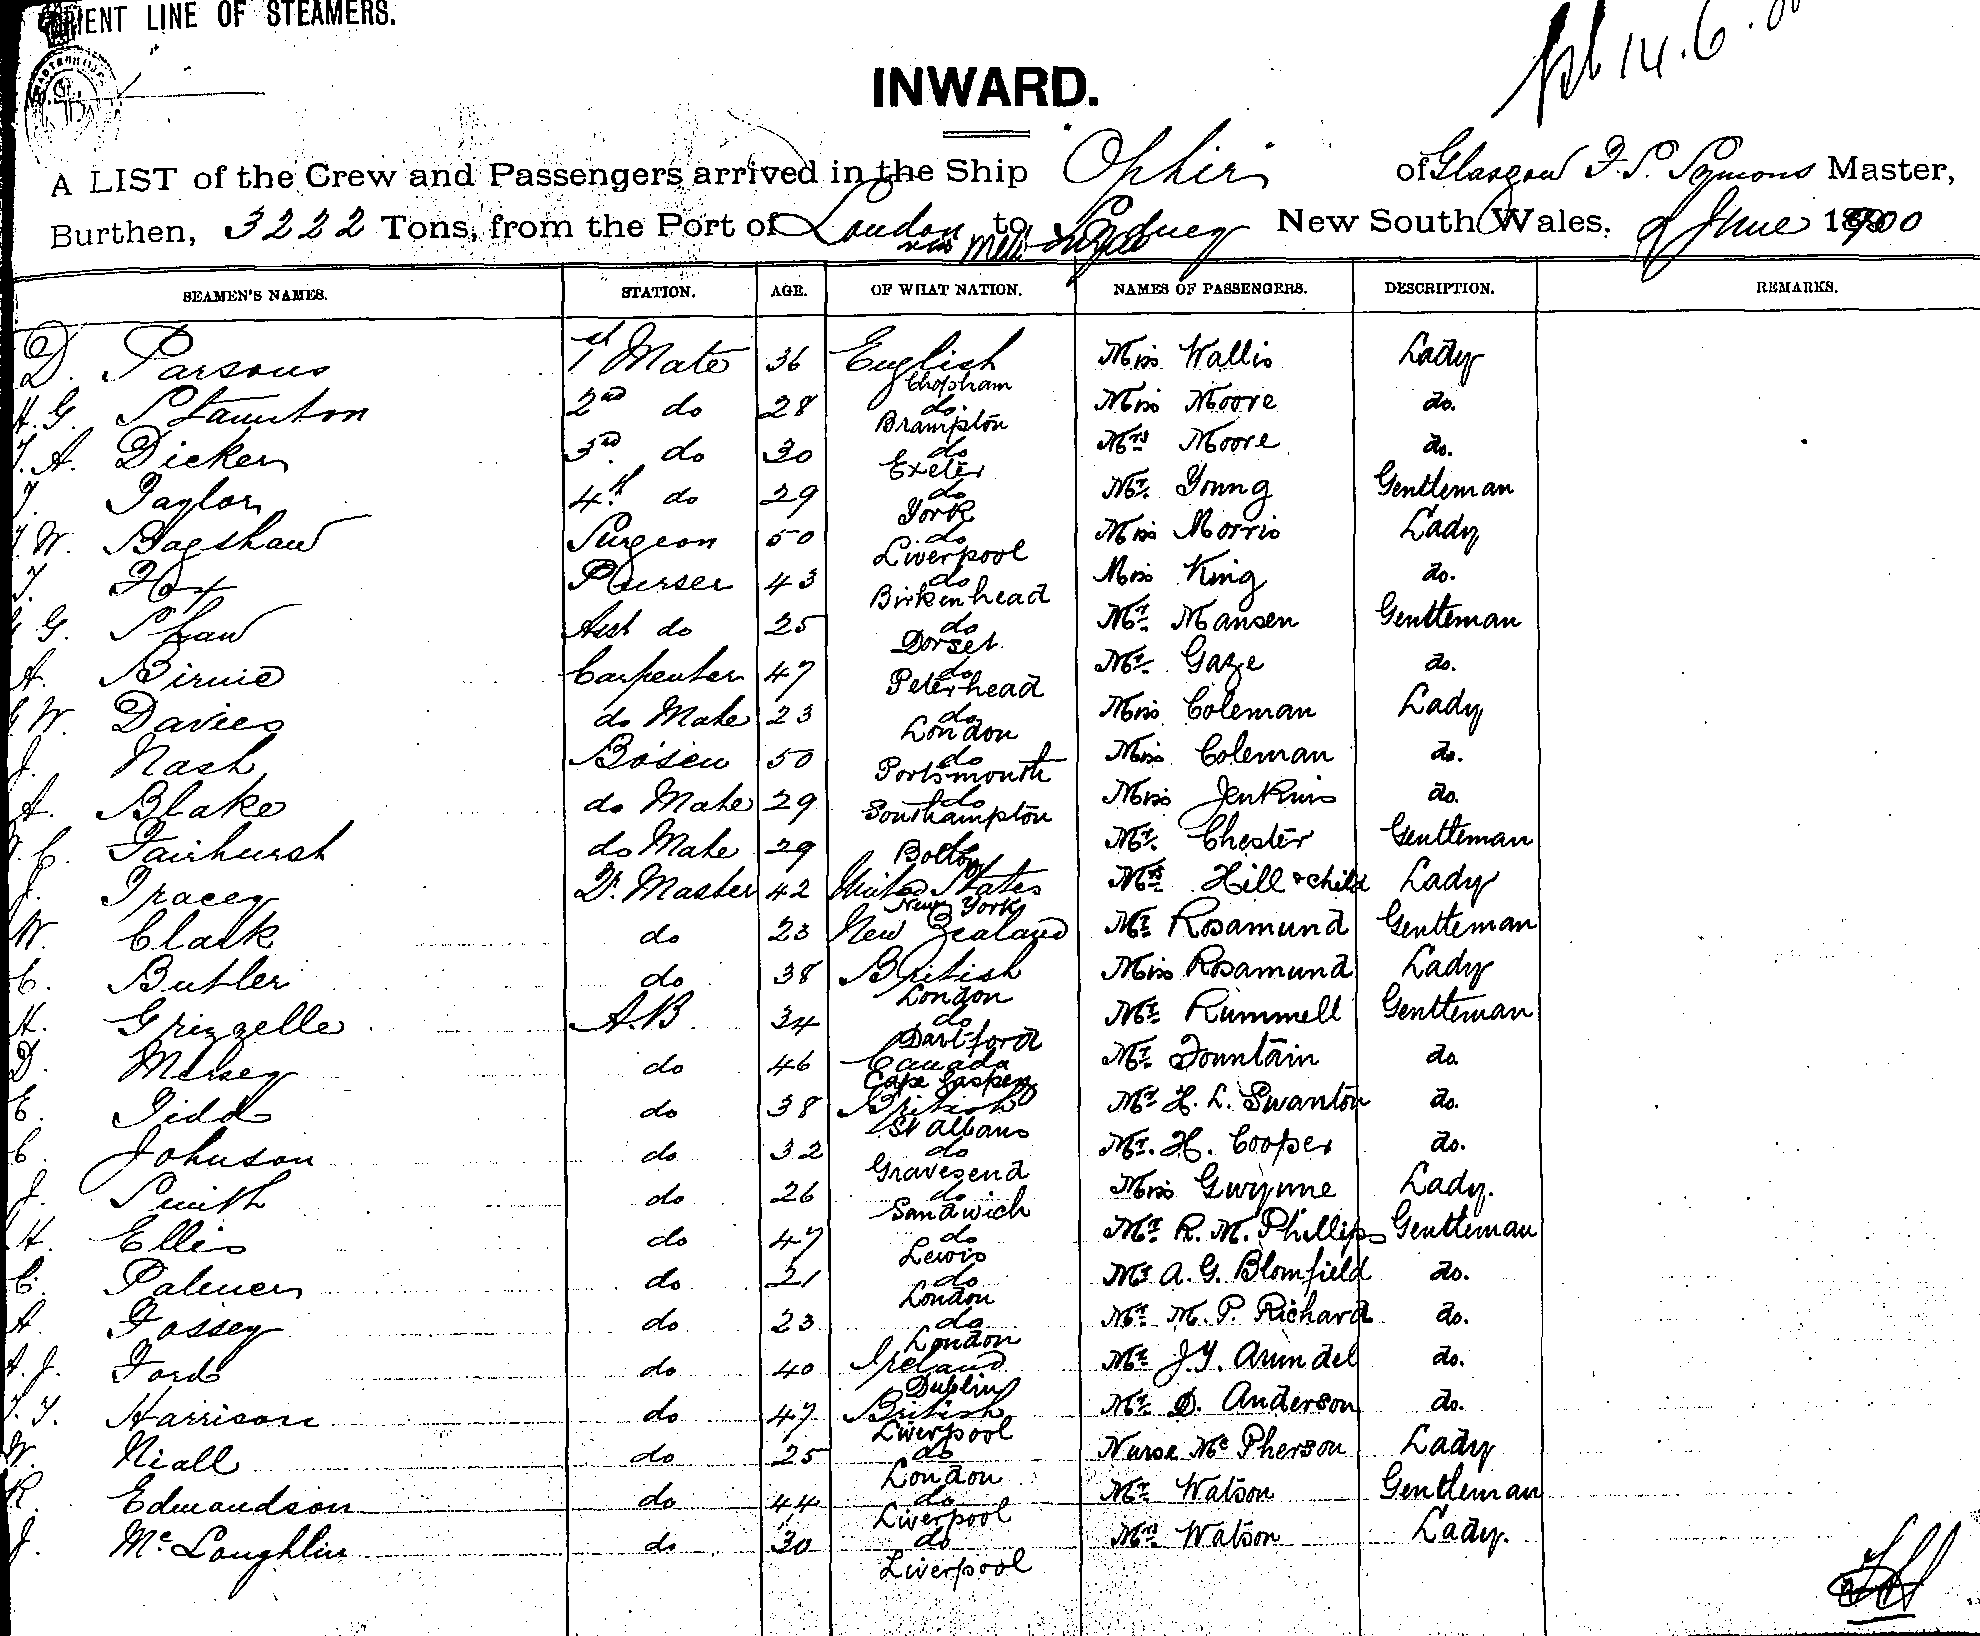 ORIENT LINE OF STEAMERS.
14.6.00
INWARD.
A LIST of the Crew and Passengers arrived in the Ship Ophir of Glasgow F. S. Symons Master,
Burthen, 3222 Tons, from the Port of London to Sydney New South Wales, 9 June 1900
via Melb
SEAMEN'S NAMES. STATION. AGE. OF WHAT NATION. NAMES OF PASSENGERS. DESCRIPTION. REMARKS.
D. Parsons 1st Mate 36 English Miss Wallis Lady
Chobham
H. G. Staunton 2nd do 28 do. Miss Moore do.
Brampton
A. Dicker 3rd do 30 do Mrs Moore do.
Exeter
T. Taylor 4th do 29 do Mr. Young Gentleman
York
W. Bagshaw Surgeon 50 do Miss Morris Lady
Liverpool
T. Fox Purser 43 do Miss King do.
Birkenhead
G. Shaw Asst do 25 do Mr. Mansen Gentleman
Dorset
A. Birnie Carpenter 47 do Mr. Gaze do.
Peterhead
W. Davies do Mate 23 do Miss Coleman Lady
London
J. Nash Bosen 50 do Miss Coleman do.
Portsmouth
A. Blake do Mate 29 do Miss Jenkins do.
Southampton
C. Fairhurst do Mate 29 Mr. Chester Gentleman
Bolton
J. Tracey Qr. Master 42 United States Mrs Hill & child Lady
New York
W. Clark do 23 New Zealand Mr. Rosamund Gentleman
C. Butler do 38 British Miss Rosamund Lady
London
H. Grizzelle A.B. 34 do Mr. Rummell Gentleman
Dartford
D. Mersey do 46 Canada Mr. Fountain do.
Cape Gaspey
E. Tidd do 38 British Mr. H. L. Swanton do.
St Albans
C. Johnson do 32 do Mr. H. Cooper do.
Gravesend
J. Smith do 26 do Miss Gwynne Lady.
Sandwich
H. Ellis do 47 do Mr. R. M. Phillips Gentleman
Lewis
C. Palmer do 21 do Mr A. G. Blomfield do.
London
A. Fossey do 23 do Mr. M. P. Richard do.
London
A. J. Ford do 40 Ireland Mr. J. Y. Arundel do.
Dublin
T. Y. Harrison do 47 British Mr. D. Anderson do.
Liverpool
W. Niall do 25 do Nurse Mc Pherson Lady
London
R. Edmondson do 44 do Mr. Watson Gentleman
Liverpool
J. Mc Loughlin do 30 do Mrs Watson Lady.
Liverpool